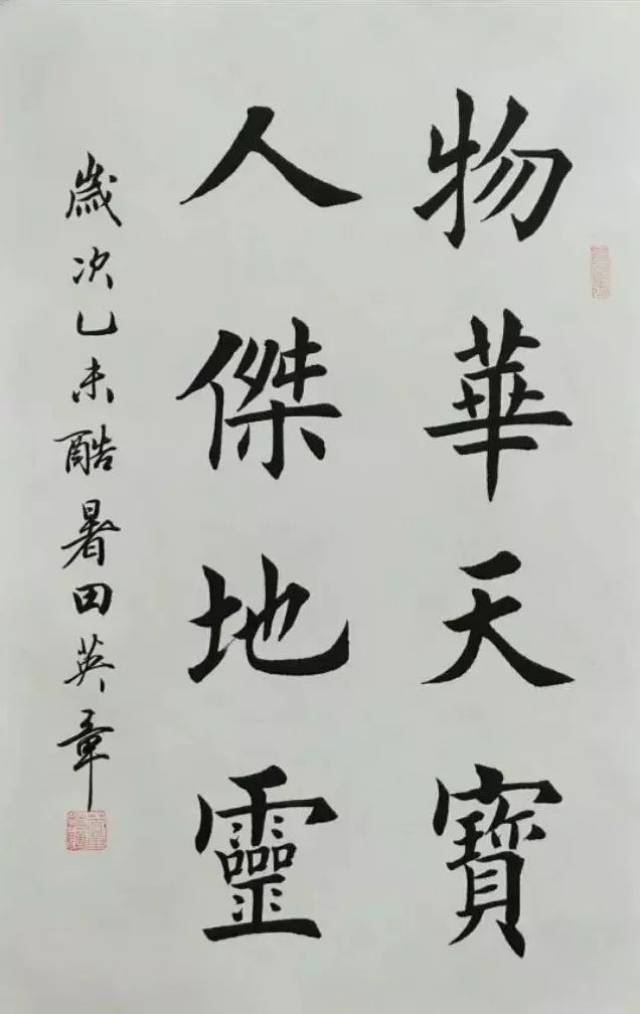 物華天寶
人傑地靈
歲次乙未酷暑田英章